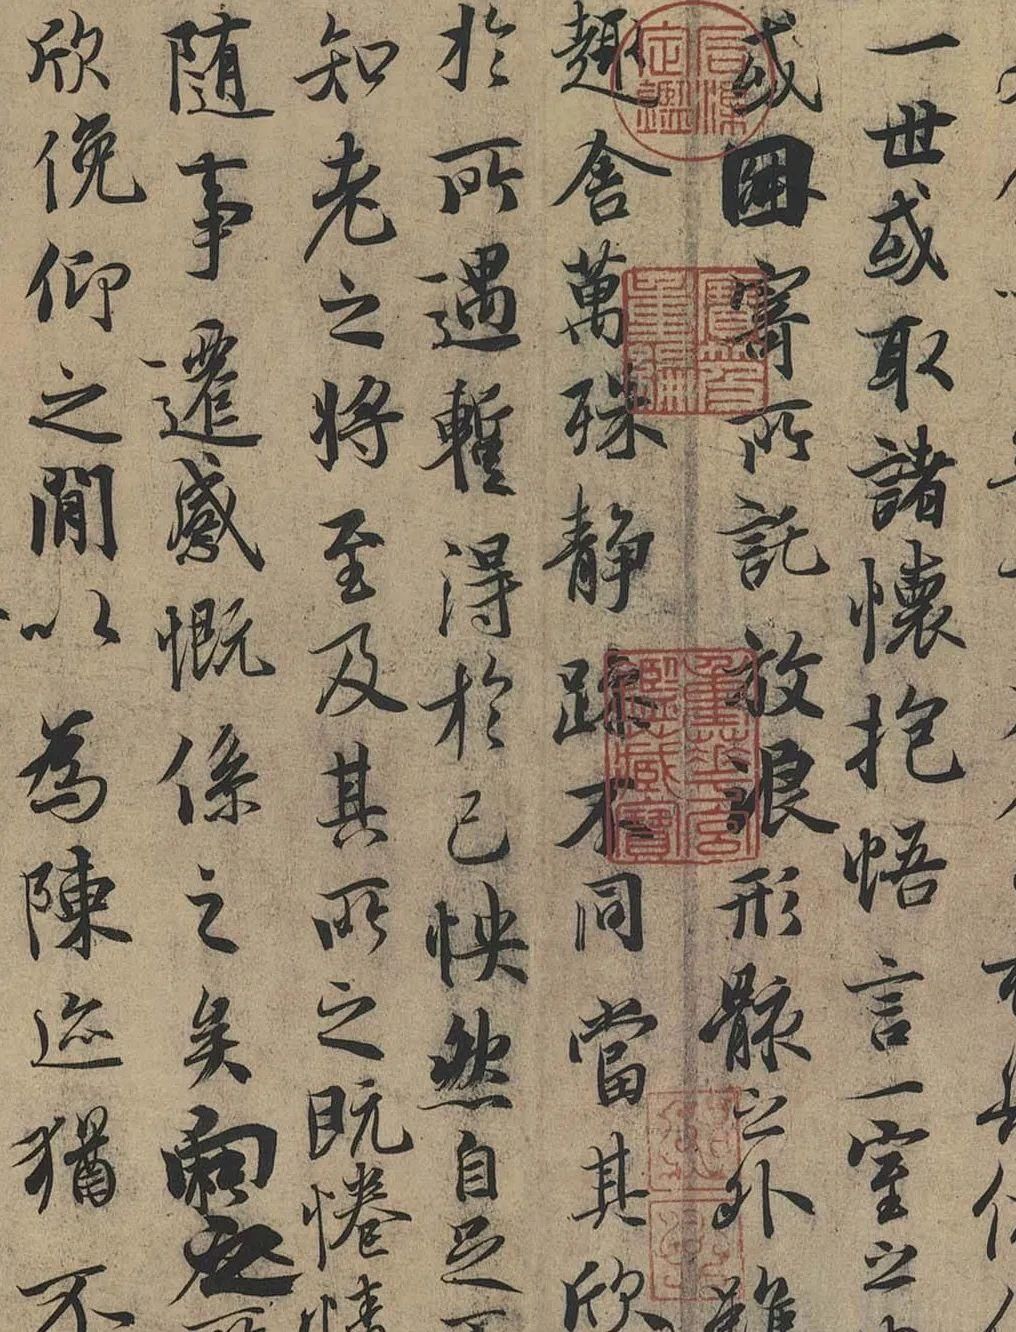 一世或取諸懷抱悟言一室之
或因寄所託放浪形骸之外雖
趣舍萬殊静躁不同當其欣
於所遇暫得於己怏然自足
知老之將至及其所之既惓情
随事遷感慨係之矣向之所
欣俛仰之閒以為陳迹猶不